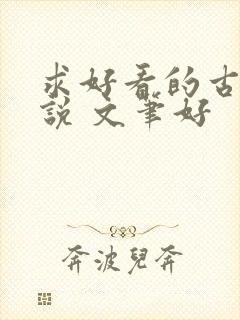 求好看的古
說 文筆好
奔波兒奔